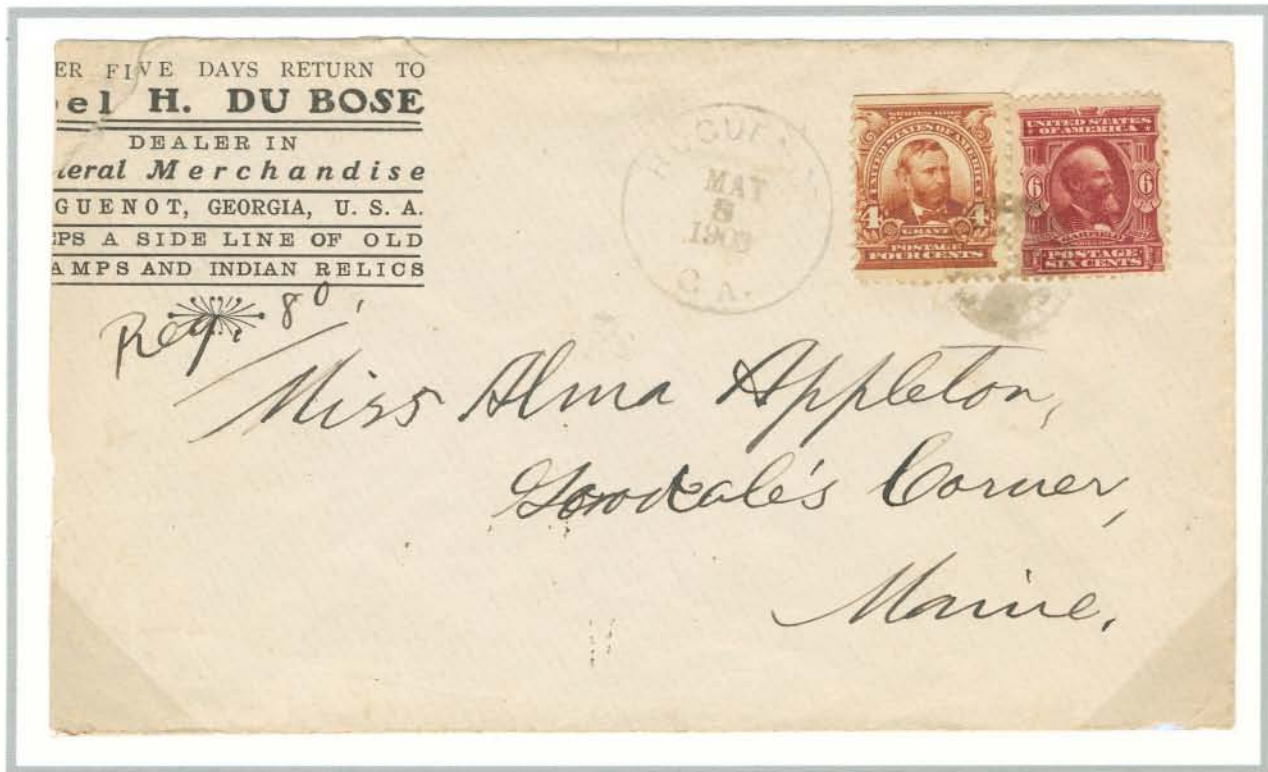 ER FIVE DAYS RETURN TO
el H. DU BOSE
DEALER IN
eral Merchandise
GUENOT, GEORGIA, U. S. A.
PS A SIDE LINE OF OLD
AMPS AND INDIAN RELICS
Reg. 80,
MAY
5
GA.
SERIES 1902
UNITED STATES OF AMERICA
4 4
GRANT
POSTAGE
FOUR CENTS
UNITED STATES
OF AMERICA
6 6
GARFIELD
POSTAGE
SIX CENTS
Miss Alma Appleton,
Corner,
Maine.